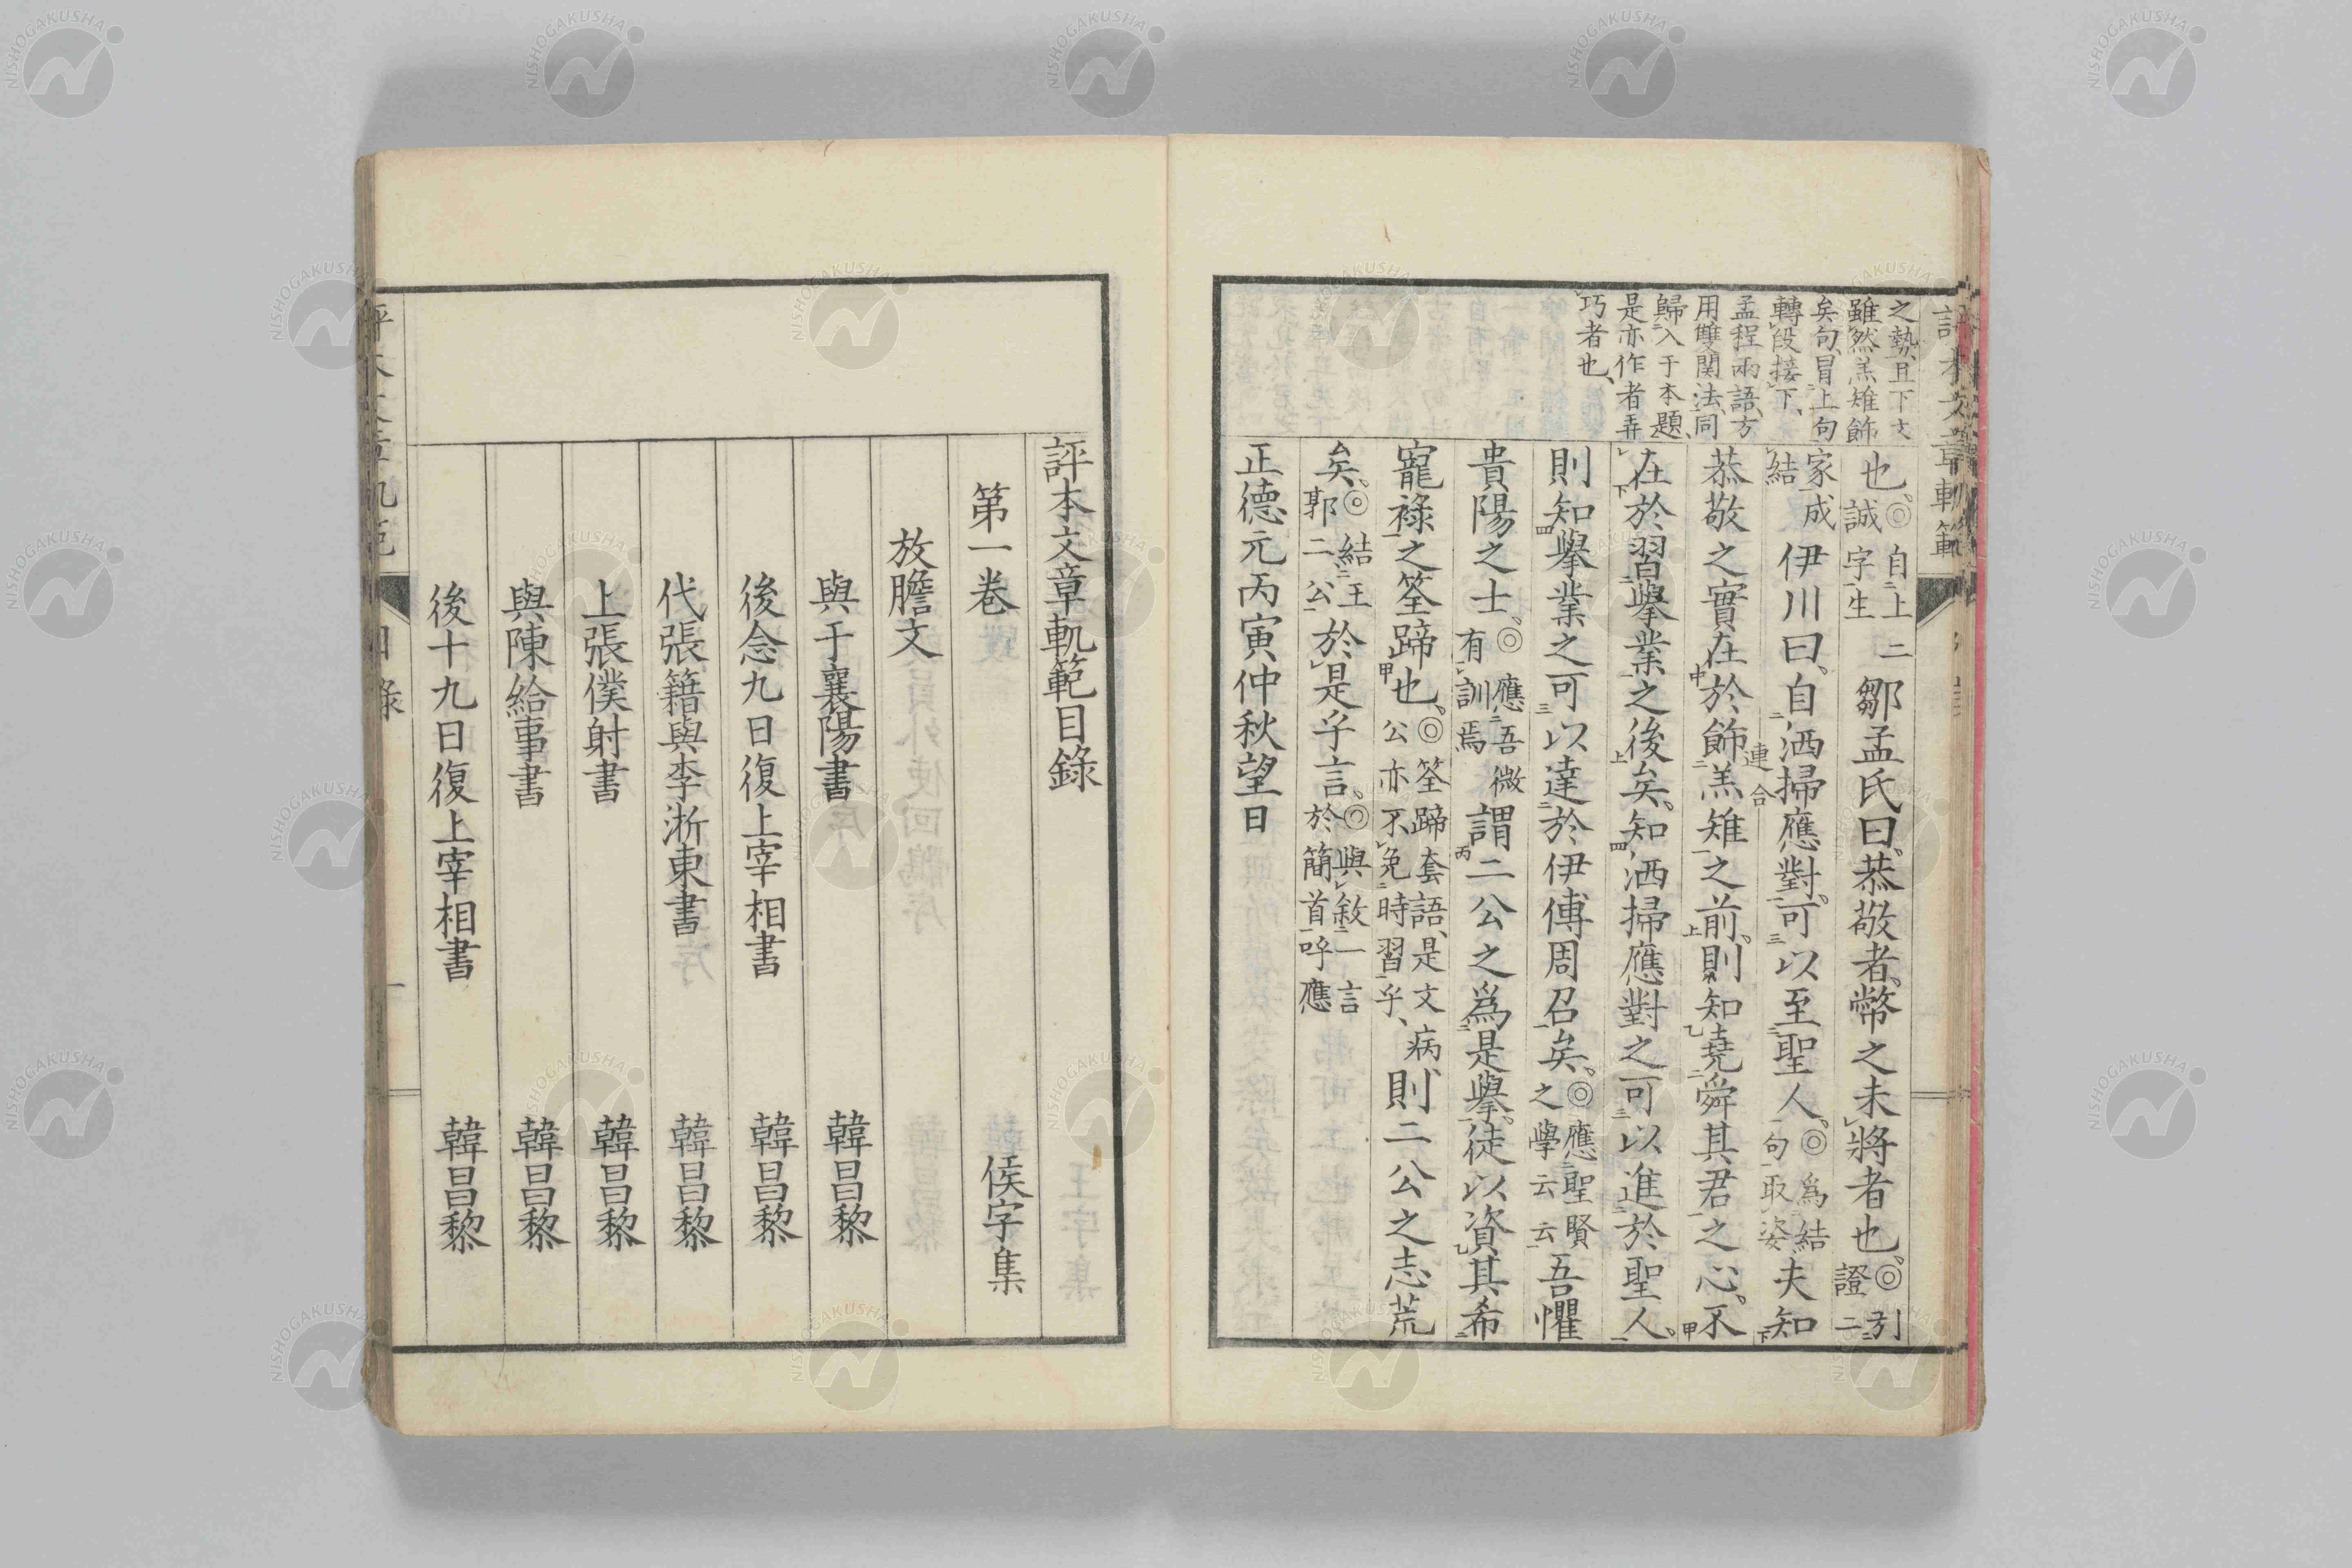 之勢、且下文
雖然羔雉飾
矣句、冒上句
轉段接下、
孟程兩語、方
用雙関法、同
歸入于本題、
是亦作者弄
巧者也、
也、◎自上二誠字生鄒孟氏曰、恭敬者、幣之未將者也、◎引證二
家成結伊川曰、自洒掃應對、可以至聖人、◎爲結句取姿夫知
恭敬之實在於飾羔雉之前、則知堯舜其君之心、不
在於習擧業之後矣、知洒掃應對之可以進於聖人、
則知擧業之可以達於伊傅周召矣、◎應聖賢之學云云吾懼
貴陽之士、◎應吾微有訓焉謂二公之爲是擧、徒以資其希
寵祿之筌蹄也、◎筌蹄套語、是文病、公亦不免時習乎、則二公之志荒
矣、◎結王郭二公於是乎言、◎與敘一言於簡首呼應
正德元丙寅仲秋望日
評本文章軌範目錄
第一卷 侯字集
放膽文
與于襄陽書 韓昌黎
後念九日復上宰相書 韓昌黎
代張籍與李淅東書 韓昌黎
上張僕射書 韓昌黎
與陳給事書 韓昌黎
後十九日復上宰相書 韓昌黎
目錄
一
NISHOGAKUSHA